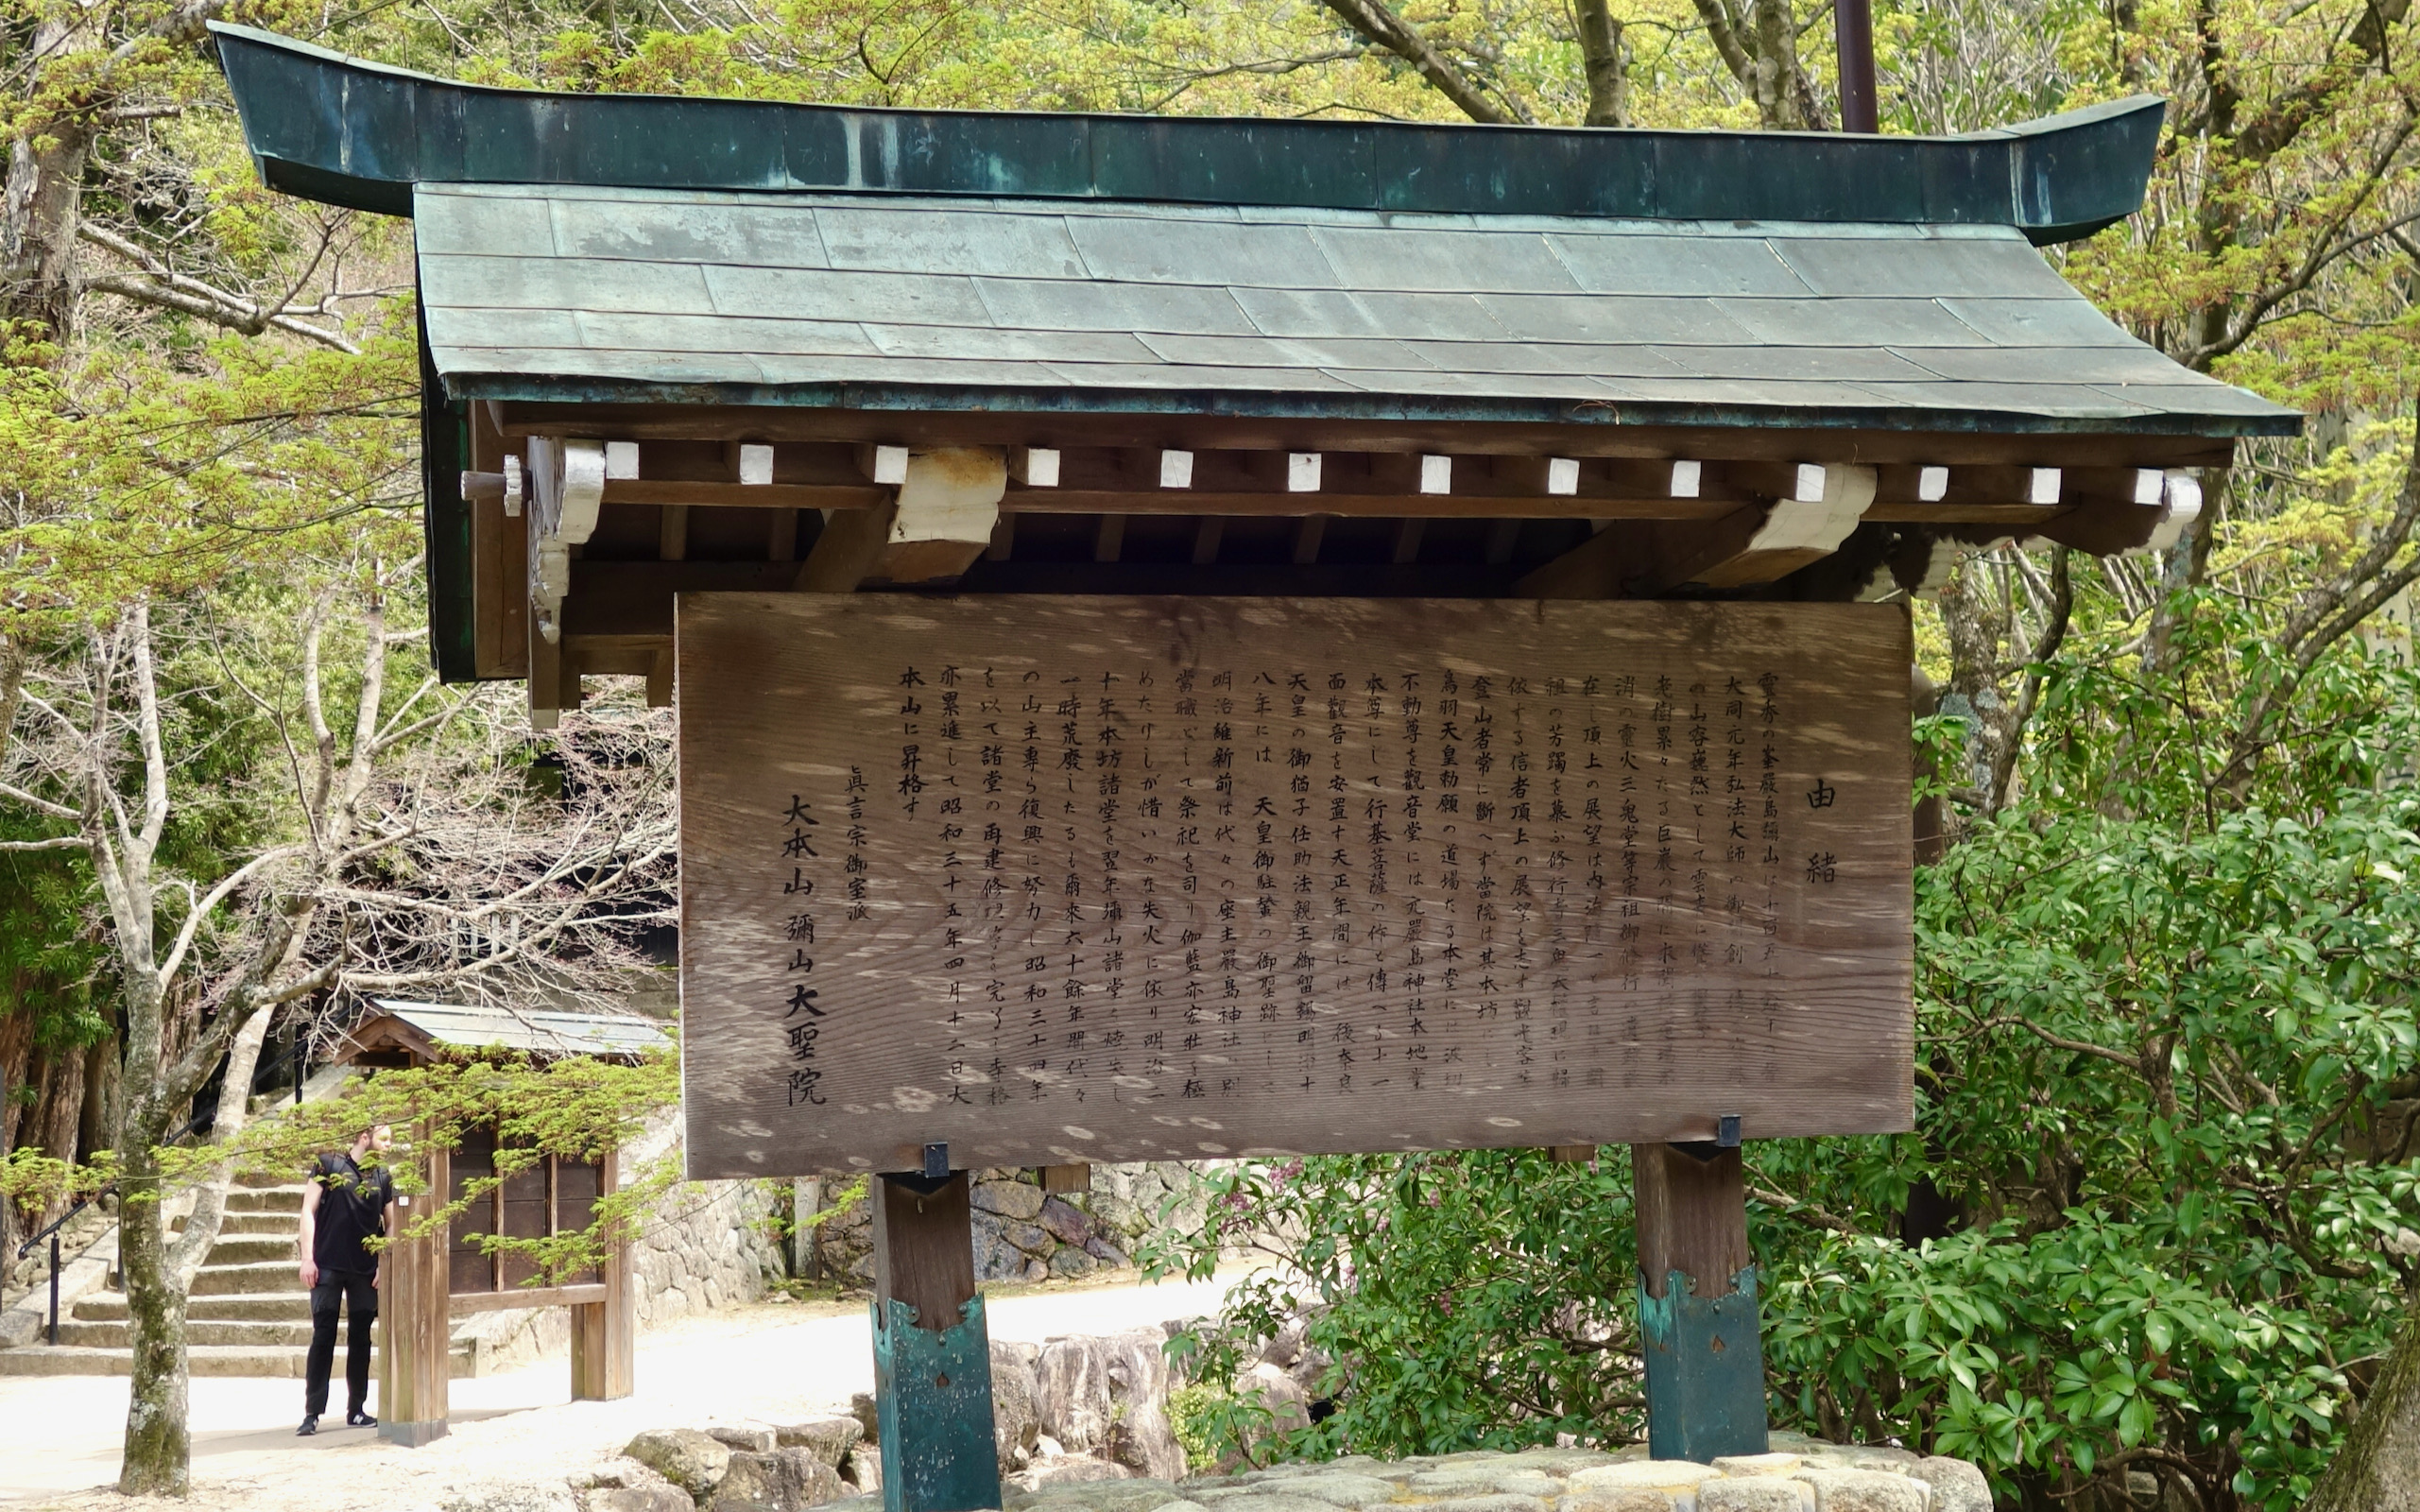 由緒
霊秀の峯嚴島彌山は十
大同元年弘法大師の御開創
の山容巍然として雲表に
老樹累々たる巨巖の間に
消の靈火三鬼堂等宗祖御修行
在し頂上の展望は内海
祖の芳躅を慕ふ修行者三鬼大權現に歸
依する信者頂上の展望を志す觀光客等
登山者常に斷へず當院は其本坊
鳥羽天皇勅願の道場たる本堂には波切
不動尊を觀音堂には元嚴島神社本地堂
本尊にして行基菩薩の作と傳へる十一
面觀音を安置す天正年間には 後奈良
天皇の御猶子任助法親王御留錫明治十
八年には 天皇御駐蹕の御聖跡
明治維新前は代々の座主嚴島神社の別
當職として祭祀を司り伽藍亦宏壯を極
めたりしが惜いかな失火に依り明治二
十年本坊諸堂を翌年彌山諸堂を燒失し
一時荒廢したるも爾來六十餘年間代々
の山主專ら復興に努力し昭和三十四年
を以て諸堂の再建修理完了寺格
亦累進して昭和三十五年四月十二日大
本山に昇格す
眞言宗御室派
大本山 彌山大聖院